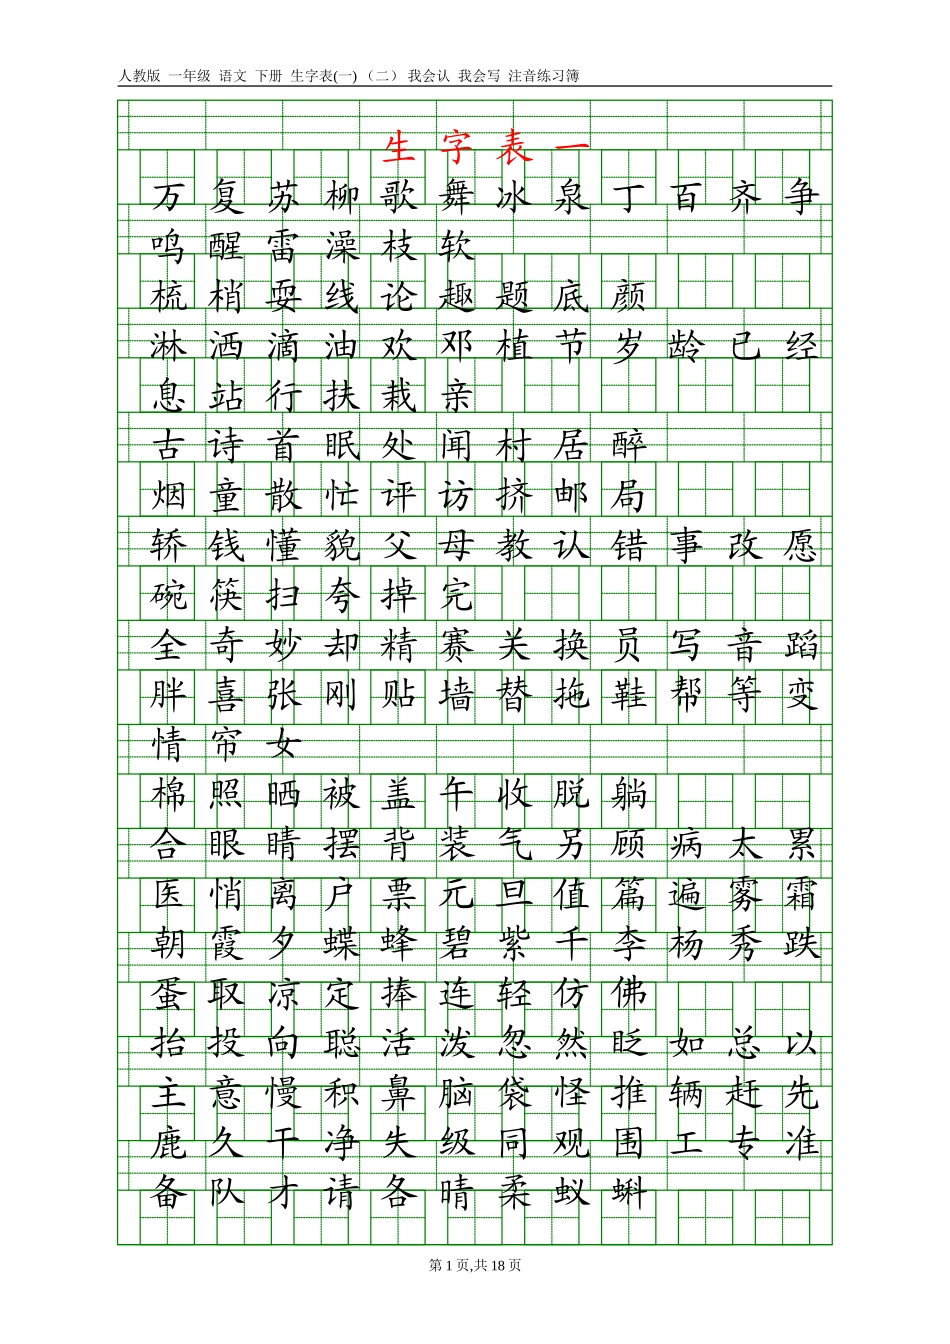 人教版 一年级 语文 下册 生字表(一) （二） 我会认 我会写 注音练习簿
生 字 表 一
万 复 苏 柳 歌 舞 冰 泉 丁 百 齐 争
鸣 醒 雷 澡 枝 软
梳 梢 耍 线 论 趣 题 底 颜
淋 洒 滴 油 欢 邓 植 节 岁 龄 已 经
息 站 行 扶 栽 亲
古 诗 首 眠 处 闻 村 居 醉
烟 童 散 忙 评 访 挤 邮 局
轿 钱 懂 貌 父 母 教 认 错 事 改 愿
碗 筷 扫 夸 掉 完
全 奇 妙 却 精 赛 关 换 员 写 音 蹈
胖 喜 张 刚 贴 墙 替 拖 鞋 帮 等 变
情 帘 女
棉 照 晒 被 盖 午 收 脱 躺
合 眼 睛 摆 背 装 气 另 顾 病 太 累
医 悄 离 户 票 元 旦 值 篇 遍 雾 霜
朝 霞 夕 蝶 蜂 碧 紫 千 李 杨 秀 跌
蛋 取 凉 定 捧 连 轻 仿 佛
抬 投 向 聪 活 泼 忽 然 眨 如 总 以
主 意 慢 积 鼻 脑 袋 怪 推 辆 赶 先
鹿 久 干 净 失 级 同 观 围 工 专 准
备 队 才 请 各 晴 柔 蚁 蝌
第 1 页,共 18 页